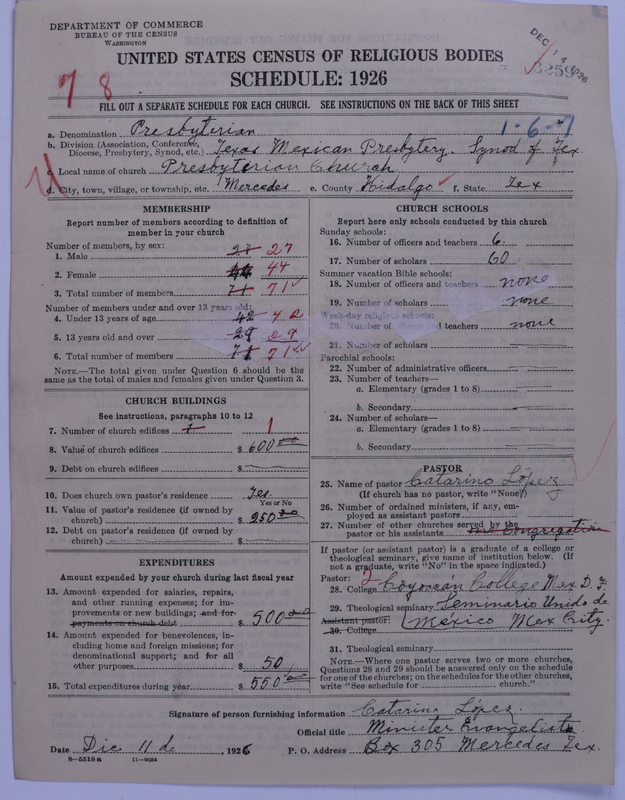 DEPARTMENT OF COMMERCE
BUREAU OF THE CENSUS
WASHINGTON
DEC 1926
3259
UNITED STATES CENSUS OF RELIGIOUS BODIES
SCHEDULE: 1926
7 8
FILL OUT A SEPARATE SCHEDULE FOR EACH CHURCH. SEE INSTRUCTIONS ON THE BACK OF THIS SHEET
a. Denomination Presbyterian 1-6-7
b. Division (Association, Conference, Diocese, Presbytery, Synod, etc.) Texas Mexican Presbytery. Synod of Tex.
c. Local name of church Presbyterian Church
d. City, town, village, or township, etc. Mercedes e. County Hidalgo f. State Tex
MEMBERSHIP
Report number of members according to definition of
member in your church
Number of members, by sex:
1. Male 27 27
2. Female 44 44
3. Total number of members 71 71
Number of members under and over 13 years old:
4. Under 13 years of age 42 42
5. 13 years old and over 29 29
6. Total number of members 71 71
NOTE.—The total given under Question 6 should be
same as the total of males and females given under Question 3.
CHURCH BUILDINGS
See instructions, paragraphs 10 to 12
7. Number of church edifices 1 1
8. Value of church edifices $ 600.00
9. Debt on church edifices $
10. Does church own pastor's residence Yes.
Yes or No
11. Value of pastor's residence (if owned by
church) $ 250.00
12. Debt on pastor's residence (if owned by
church) $
EXPENDITURES
Amount expended by your church during last fiscal year
13. Amount expended for salaries, repairs,
and other running expenses; for im-
provements or new buildings; and for
payments on church debt $ 500.00
14. Amount expended for benevolences, in-
cluding home and foreign missions; for
denominational support; and for all
other purposes $ 50
15. Total expenditures during year $ 550.00
CHURCH SCHOOLS
Report here only schools conducted by this church
Sunday schools:
16. Number of officers and teachers 6
17. Number of scholars 60
Summer vacation Bible schools:
18. Number of officers and teachers none
19. Number of scholars none
Week-day religious schools:
20. Number of officers and teachers none
21. Number of scholars
Parochial schools:
22. Number of administrative officers
23. Number of teachers—
a. Elementary (grades 1 to 8)
b. Secondary
24. Number of scholars—
a. Elementary (grades 1 to 8)
b. Secondary
PASTOR
25. Name of pastor Catarino López
(If church has no pastor, write "None")
26. Number of ordained ministers, if any, em-
ployed as assistant pastors
27. Number of other churches served by the
pastor or his assistants one congregation
If pastor (or assistant pastor) is a graduate of a college or
theological seminary, give name of institution below. (If
not a graduate, write "No" in the space indicated.)
Pastor: 2
28. College Coyoacán College Mex D. F.
29. Theological seminary Seminario Unido de
Assistant pastor:
30. College Mexico Mex City.
31. Theological seminary
NOTE.—Where one pastor serves two or more churches,
Questions 28 and 29 should be answered only on the schedule
for one of the churches; on the schedules for the other churches,
write "See schedule for church."
Signature of person furnishing information Catarino López.
Official title Minister Evangelista
Date Dic 11 de, 1926 P. O. Address Box 305 Mercedes Tex.
8-5518a 11-9054